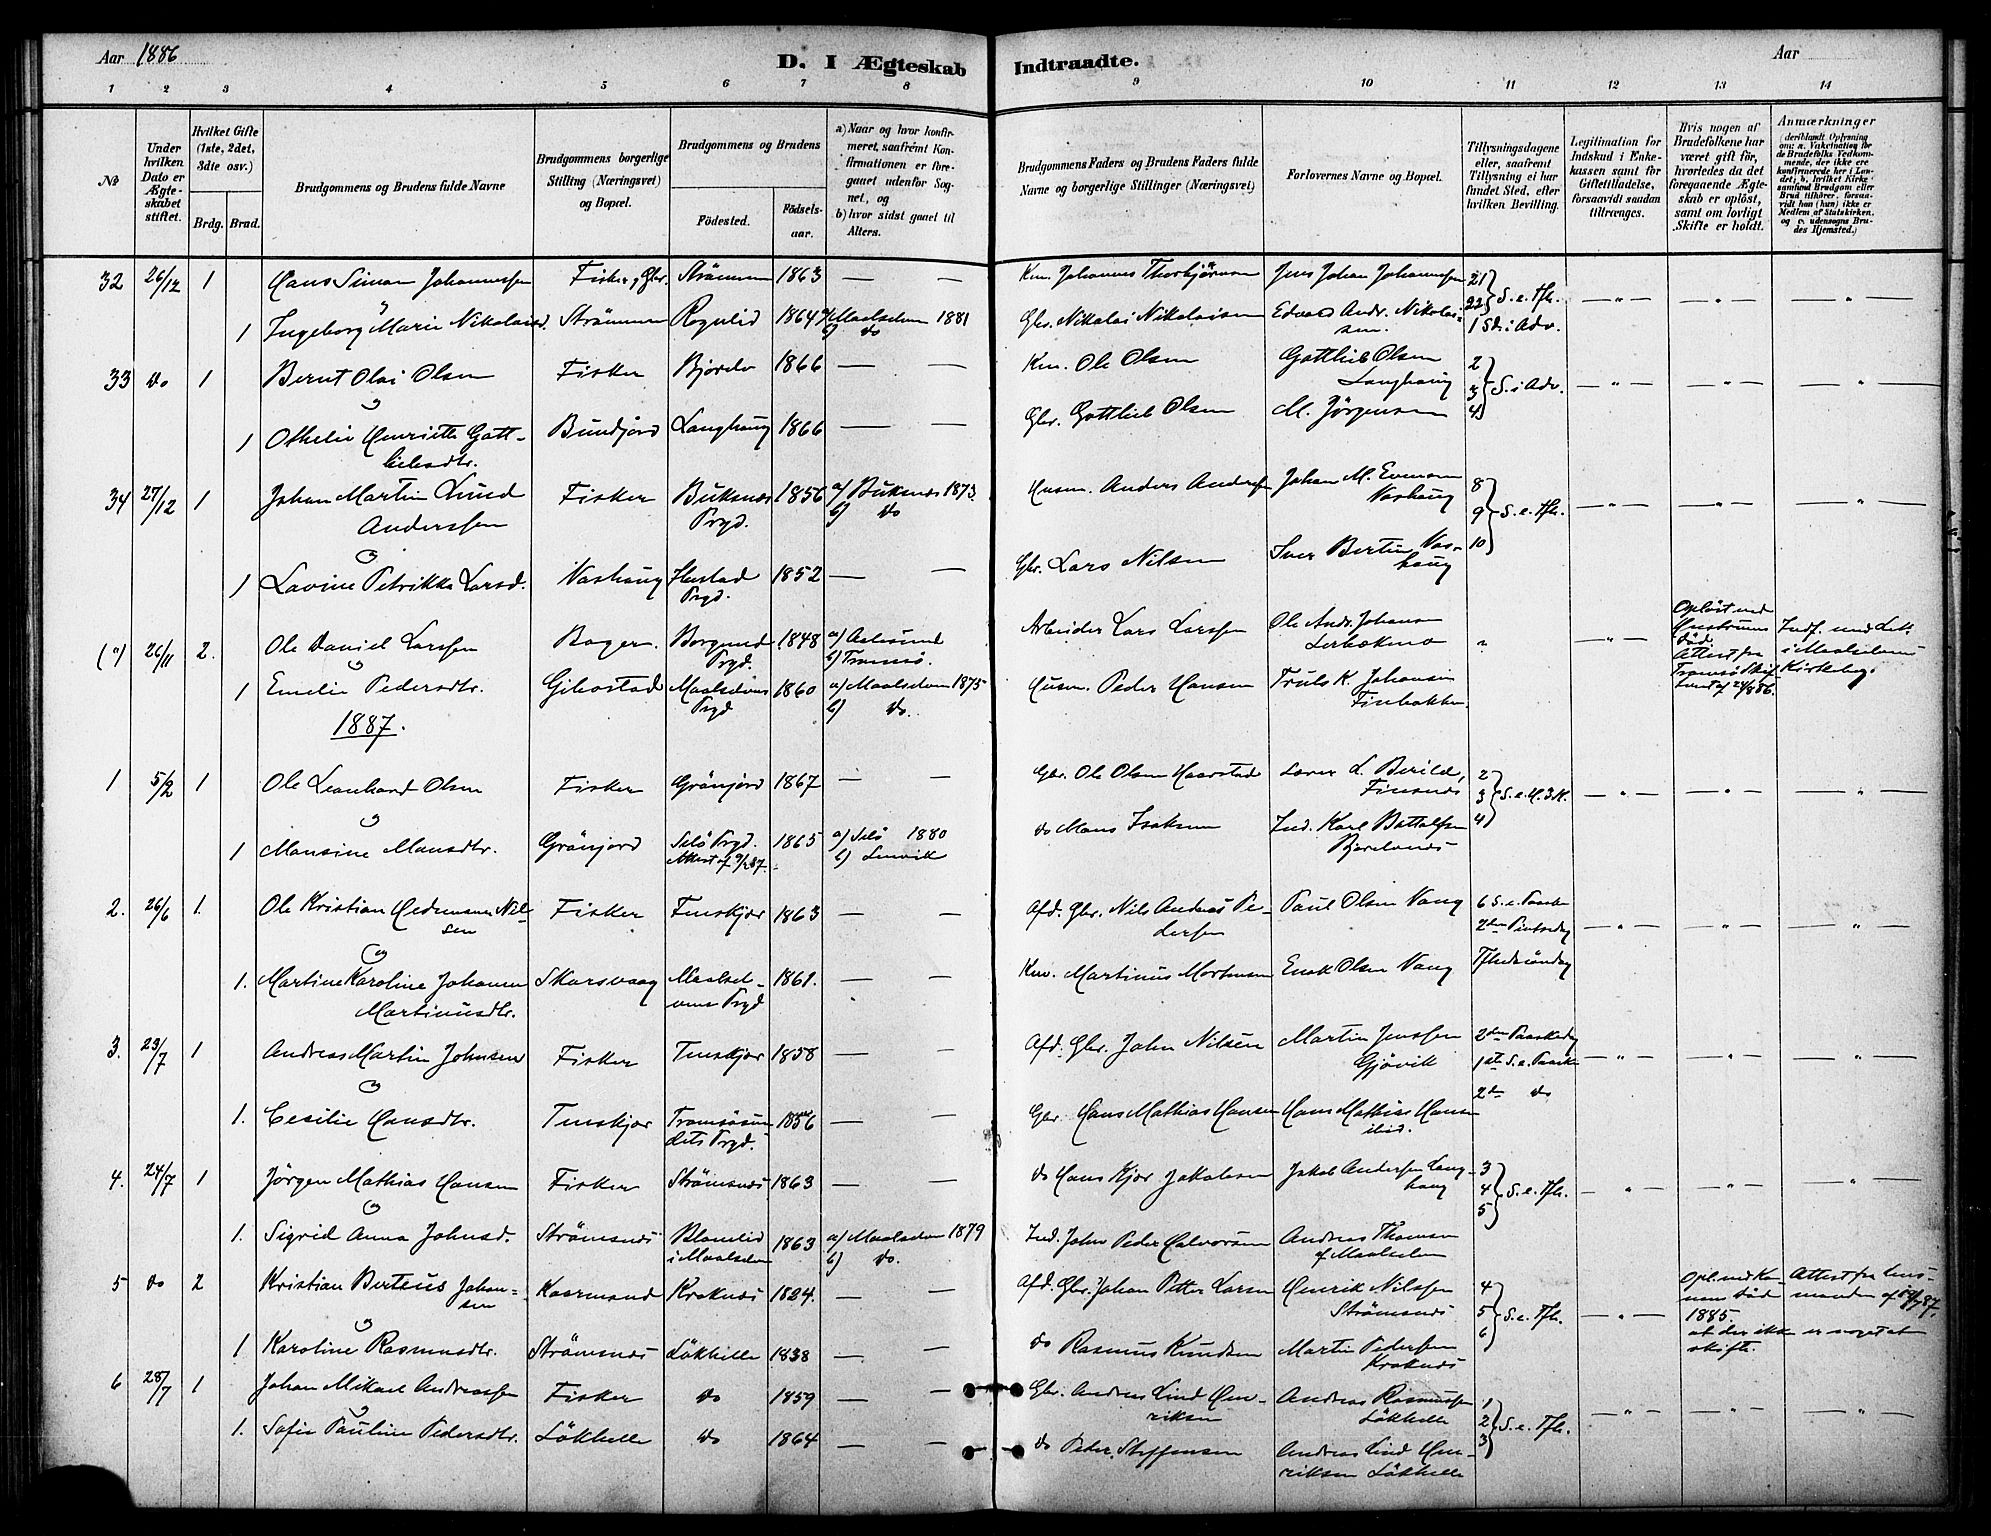 Aar 1886
D. I Ægteskab
Indtraadte.
Aar
1 2 3 4 5 6 7 8 9 10 11 12 13 14
№
Under hvilken Dato er Ægteskabet stiftet.
Hvilket Gifte (1ste, 2det, 3die osv.)
Brdg. Brud.
Brudgommens og Brudens fulde Navne
Brudgommens borgerlige Stilling (Næringsvei) og Bopæl.
Brudgommens og Brudens
Födested.
Födselsaar.
a) Naar og hvor konfirmeret, saafremt Konfirmationen er foregaaet udenfor Sognet, og
b) hvor sidst gaaet til Alters.
Brudgommens Faders og Brudens Faders fulde Navne og borgerlige Stillinger (Næringsvei)
Forlovernes Navne og Bopæl.
Tillysningsdagene eller, saafremt Tillysning ei har fundet Sted, efter hvilken Bevilling.
Legitimation for Indskud i Enkekassen samt for Giftetilladelse, forsaavidt saadan tiltrænges.
Hvis nogen af Brudefolkene har været gift för, hvorledes da det foregaaende Ægteskab er oplöst, samt om lovligt Skifte er holdt.
Anmærkninger
(deriblandt Oplysning om: a. Vakcination for de Brudefolks Vedkommende, der ikke ere konfirmerede her i Landet; b. hvilket Kirkesamfund Brudgom eller Brud tilhörer, forsaavidt han (hun) ikke er Medlem af Statskirken, og c. udensogns Brudes Hjemsted.)
32 26/12 1 Hans Simon Johannessen Fisker, Gbr. Strömmen 1863 — — Km. Johannes Thorbjörnsen Jens Johan Johannessen 21 22 S. e. Tfh. — " — — " — "
1 Ingeborg Marie Nikolaisd. Strömmen Rognlid 1864 a) Maalselven 1881 b) do Gbr. Nikolai Nikolaisen Edvard Andr. Nikolaisen. 1 Sd. i Adv.
33 do 1 Bernt Olai Olsen Fisker Bjorelv 1866 — — Km. Ole Olsen Gottlieb Olsen Langhaug 2 3 4 S. i Adv. — " — — " — "
1 Othelie Henriette Gottliebsdtr. Bundjord Langhaug 1866 — — Gbr. Gottlieb Olsen M. Jörgensen
34 27/12 1 Johan Martin Lund Anderssen Fisker Buksnæs Prgd. 1856 a) Buksnes 1873. b) do Husm. Anders Andersen Johan M. Evensen Vashaug 8 9 10 S. e. Tfh. — " — — " — "
1 Lavine Petrikke Larsd. Vashaug Hustad Prgd. 1852 — — Gbr. Lars Nilsen Iver Bertin Vashaug
(") 26/11 2. Ole Daniel Larssen Bager. Borgund Prgd. 1848 a) Aalesund b) Tromsö. Arbeider Lars Larssen Ole Andr. Johansen Lerbækmo " — " — Oplöst ved Hustruens död. Attest fra Tromsö Skifteret af 24/8 86. Indf. med Lit. i Maalselvens Kirkebog.
1 Emelie Pedersdtr. Gibostad Maalselvens Prgd 1860 a) Maalselven 1875 b) do. Husm. Peder Hansen Truls K. Johansen Finbakken.
1887.
1 5/2 1 Ole Leonhard Olsen Fisker Grönjord 1867 — — Gbr. Ole Olsen Haarstad L. Berild, Finsnes 2 3 4 S. e. H. 3 K. — " — — " — "
1 Mansine Mansdtr. Grönjord Selö Prgd. Attest af 9/1 87. 1865 a) Selö 1880 b) Lenvik do Mans Isaksen Ind. Karl Bottolfsen Bjorelvnes
2. 26/6 1. Ole Kristian Hedemann Nilsen Fisker Tenskjær 1863 — — Afd. Gbr. Nils Andreas Pedersen Paul Olsen Vang 6 S. e. Paaske 2den Pintsedag — " — — " — "
1. Martine Karoline Johanna Martinusdtr. Skarsvaag Maalselvens Prgd 1861. — — Km. Martinus Mortensen Enok Olsen Vang Tfhedssöndag
3. 23/7 1 Andreas Martin Johnsen Fisker Tenskjær 1858 — — Afd. Gbr. John Nilsen Martin Jenssen Gjövik 2den Paaskedag 1ste S. e. Paaske 2den do — " — — " — "
1. Cesilie Hansdtr. Tenskjær Tromsösundets Prgd. 1856 — — Gbr. Hans Mathias Hansen Hans Mathias Hansen ibid.
4. 24/7 1 Jörgen Mathias Hansen Fisker Strömsnes 1863 — — do Hans Kjær Jakobsen Jakob Andersen Langhaug 3 4 5 S. e. Tfh. — " — — " — "
1. Sigrid Anna Johnsd. Strömsnes Blomlid i Maalselven 1863 a) Maalselven 1879 b) do. Ind. John Peder Halvorsen Andreas Thomsen af Maalselven
5 do 2 Kristian Berteus Johansen Kaarmand Kroknes 1824. — — Afd. Gbr. Johan Petter Larsen Henrik Nilssen Strömsnes 4 5 6 S. e. Tfh. — " — Opl. ved Konens död 1885. at der ikke er noget at skifte. Attest fra Lensmanden af 87.
1 Karoline Rasmusdtr. Strömsnes Lökhelle 1838 — — do Rasmus Knudsen Martin Pedersen Kroknes
6 28/7 1 Johan Mikael Andreassen Fisker do 1859 — — Gbr. Andreas Lind Henriksen Andreas Rasmussen Lökhelle 1 2 3 S. e. Tfh. — " — — " — "
1. Sofie Pauline Pedersdtr. Lökhelle do 1864 — — do Peder Steffensen Andreas Lind Henriksen Lökhelle